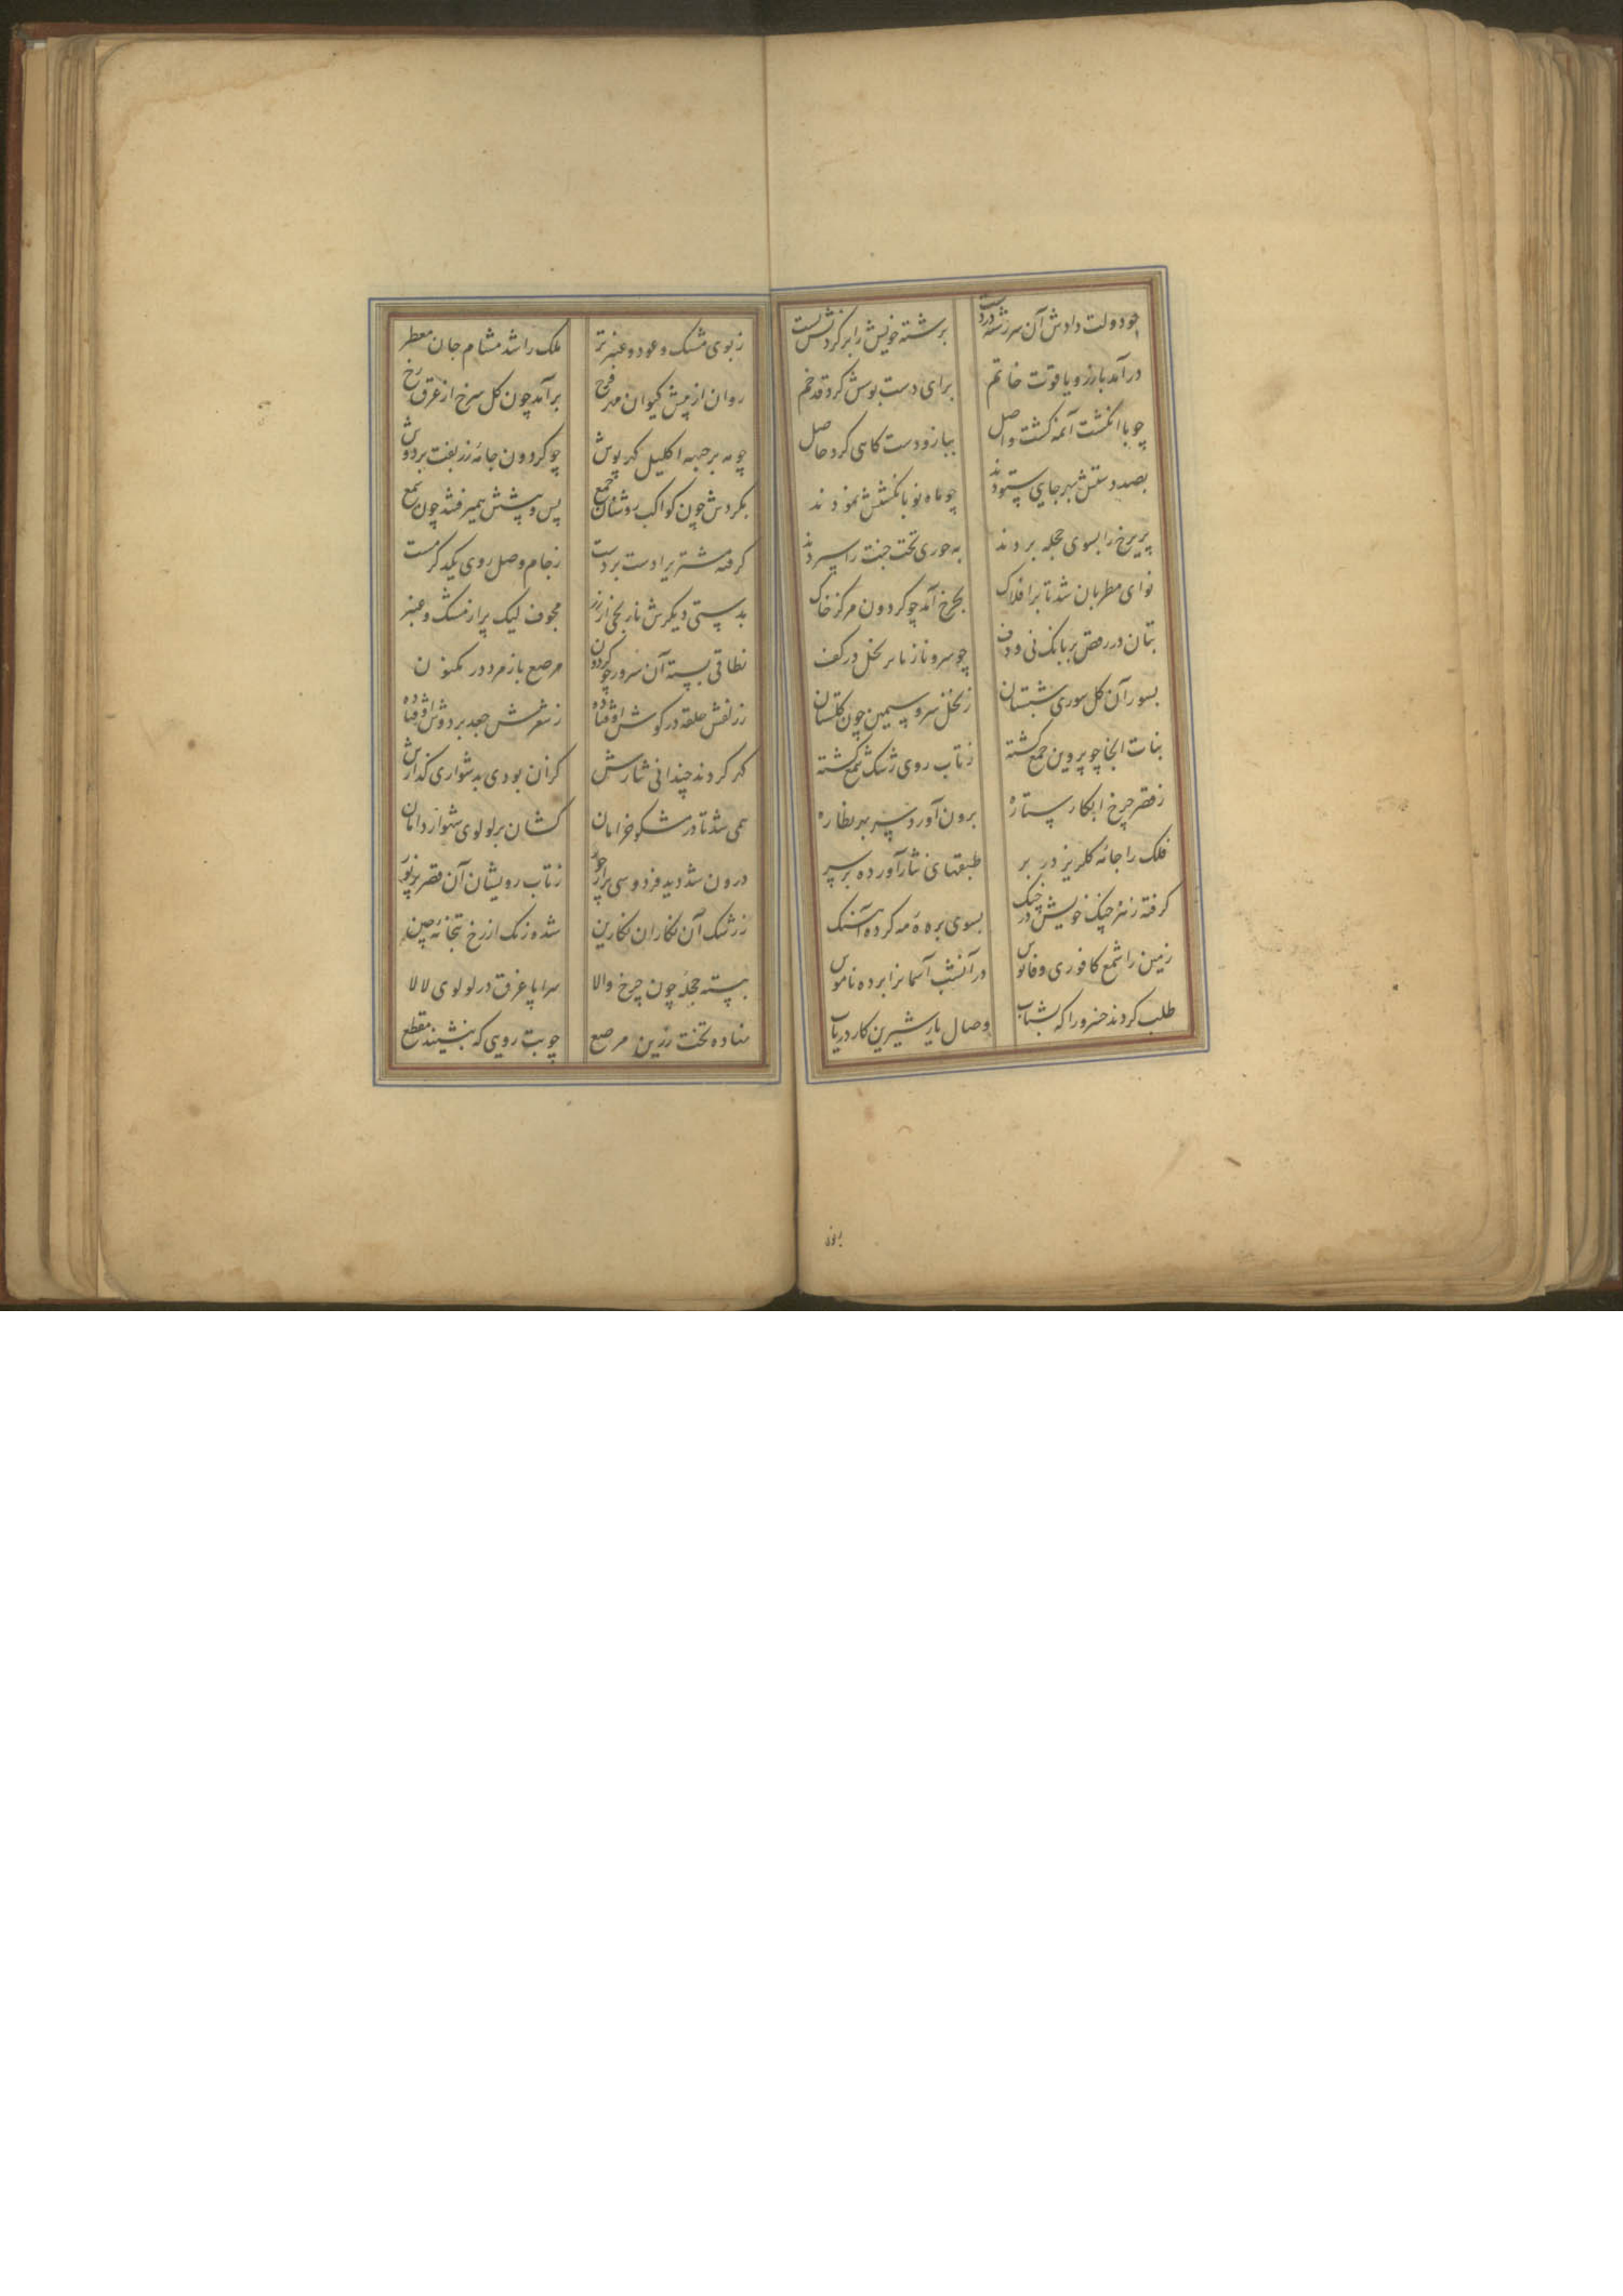 چو دولت دادش آن سررشته در دست برشته خویش را بر کردنش بست
درآمد با زر و یاقوت خاتم برای دست بوسش کرد قد خم
چو با انکشت آنمه کشت واصل ببازو دست کاهی کرد حاصل
بصد دستش بهر جایی ستودند چو ماه نو بانکشتش نمودند
پریرخ را بسوی حجله بردند به حوری تخت جنت را سپردند
نوای مطربان شد تا بر افلاک بچرخ آمد چو کردون مرکز خاک
بتان در رقص بر بانک نی و دف چو سرو ناز نابر نخل در کف
بسور آن کل سوری شبستان ز نخل سرو سیمین چون کلستان
بنات آنجا چو پروین جمع کشته ز تاب روی زشک شمع کشته
ز قصر چرخ ابکار ستاره برون آورد سر بهر نظاره
فلک را جامۀ کلریز در بر طبقهای نثار آورده بر سر
کرفته زهره چنک خویش در چنک بسوی بره مه کرده آهنک
زمین را شمع کافوری و فانوس در آنشب آسمانرا برده ناموس
طلب کردند خسرو را که بشتاب وصال یار شیرین کار دریاب
ز بوی مشک و عود و عنبر تر ملک را شد مشام جان معطر
روان از پیش کیوان مه فرخ برآمد چون کل سرخ از عرق رخ
چو مه بر جبهه اکلیل کهر پوش چو کردون جامۀ زربفت بر دوش
بکردش چون کواکب روشنان جمع پس و پیشش همیرفتند چون شمع
کرفته مشتریرا دست بر دست ز جام وصل روی یکدکر مست
بدستی دیکرش نارنجی از زر مجوف لیک پر از مشک و عنبر
نطاقی بسته آن سرور چو کردون مرصع با زمرد در مکنون
ز زلفش حلقه در کوش اوفتاده ز شعرش جعد بر دوش اوفتاده
کهر کردند چندانی نثارش کز آن بودی بدشواری کذارش
همی شد تا در مشکو خرامان کشان بر لولوی شهوار دامان
درون شد دید فردوسی پر از حور ز تاب رویشان آن قصر پر نور
ز رشک آن نکاران نکارین شده رنک از رخ بتخانۀ چین
ببسته حجله چون چرخ والا سراپا غرق در لولوی لالا
نهاده تخت زرین مرصع چو بت رویی که بنشیند مقطع